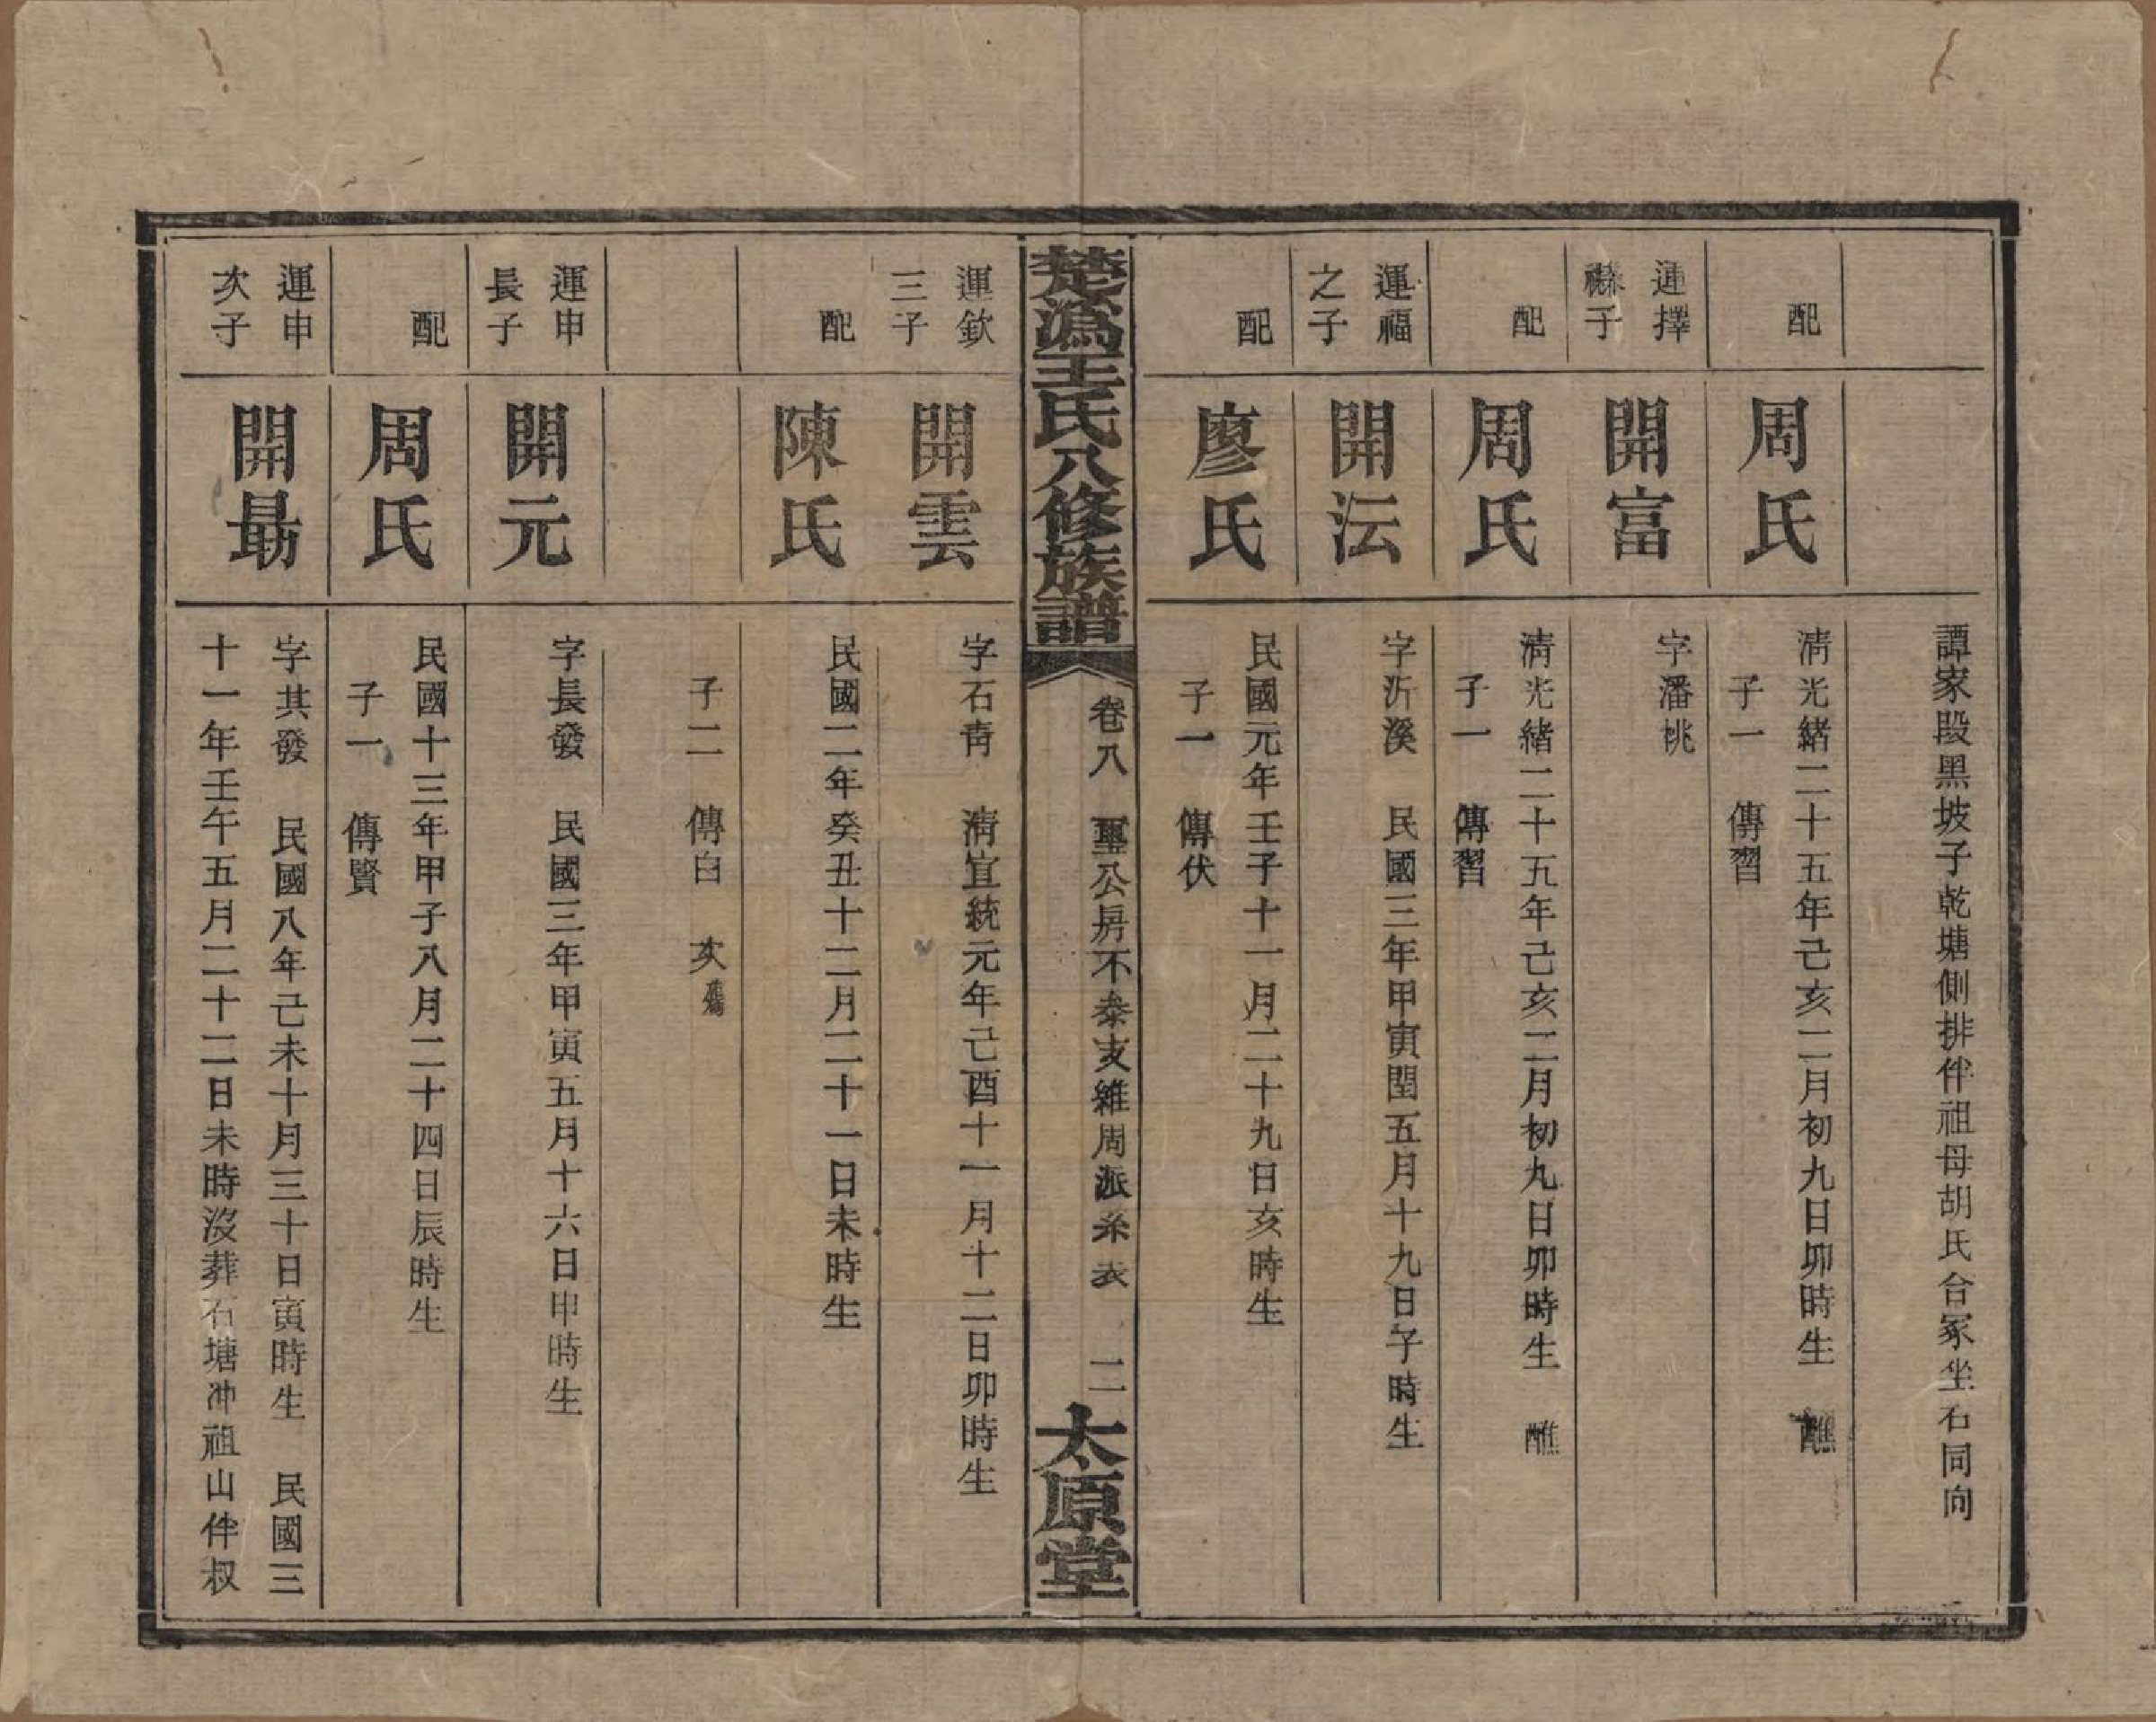 譚家段黑坡子乾塘側排伴祖母胡氏合冢坐石同向
配
周氏
清光緒二十五年己亥二月初九日卯時生 醮
子一 傳習
運擇
祧子
開富
字潘桃
配
周氏
清光緒二十五年己亥二月初九日卯時生 醮
子一 傳習
運福
之子
開沄
字沂溪 民國三年甲寅閏五月十九日子時生
配
廖氏
民國元年壬子十一月二十九日亥時生
子一 傳伏
楚溈王氏八修族譜
卷八 璽公房不泰支維周派系表 二
太原堂
運欽
三子
開雲
字石青 清宣統元年己酉十一月十二日卯時生
配
陳氏
民國二年癸丑十二月二十一日未時生
子二 傳白 次
運申
長子
開元
字長發 民國三年甲寅五月十六日申時生
配
周氏
民國十三年甲子八月二十四日辰時生
子一 傳賢
運申
次子
開勗
字其發 民國八年己未十月三十日寅時生 民國三
十一年壬午五月二十二日未時沒葬石塘冲祖山伴叔